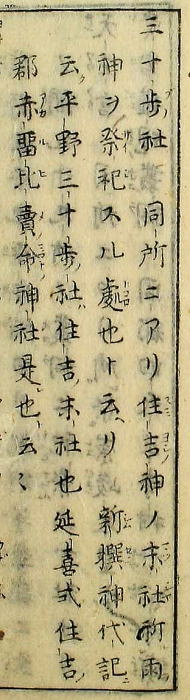 三十歩社　同所ニアリ住吉神ノ末社祈雨
神ヲ祭祀スル處也ト云リ　新撰神代記
云平野三十歩社住吉末社也延喜式住吉
郡赤留比賣命神社是也云々